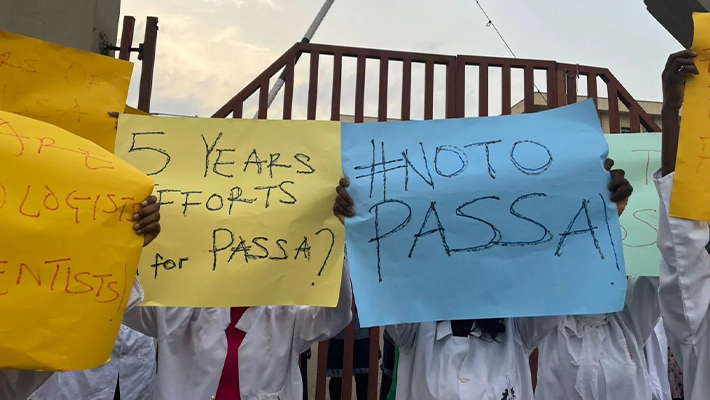 RS OF
SA
ARE
OLOGIST
ENTISTS!
5 YEARS
EFFORTS
for PASSA?
#NOTO
PASSA!